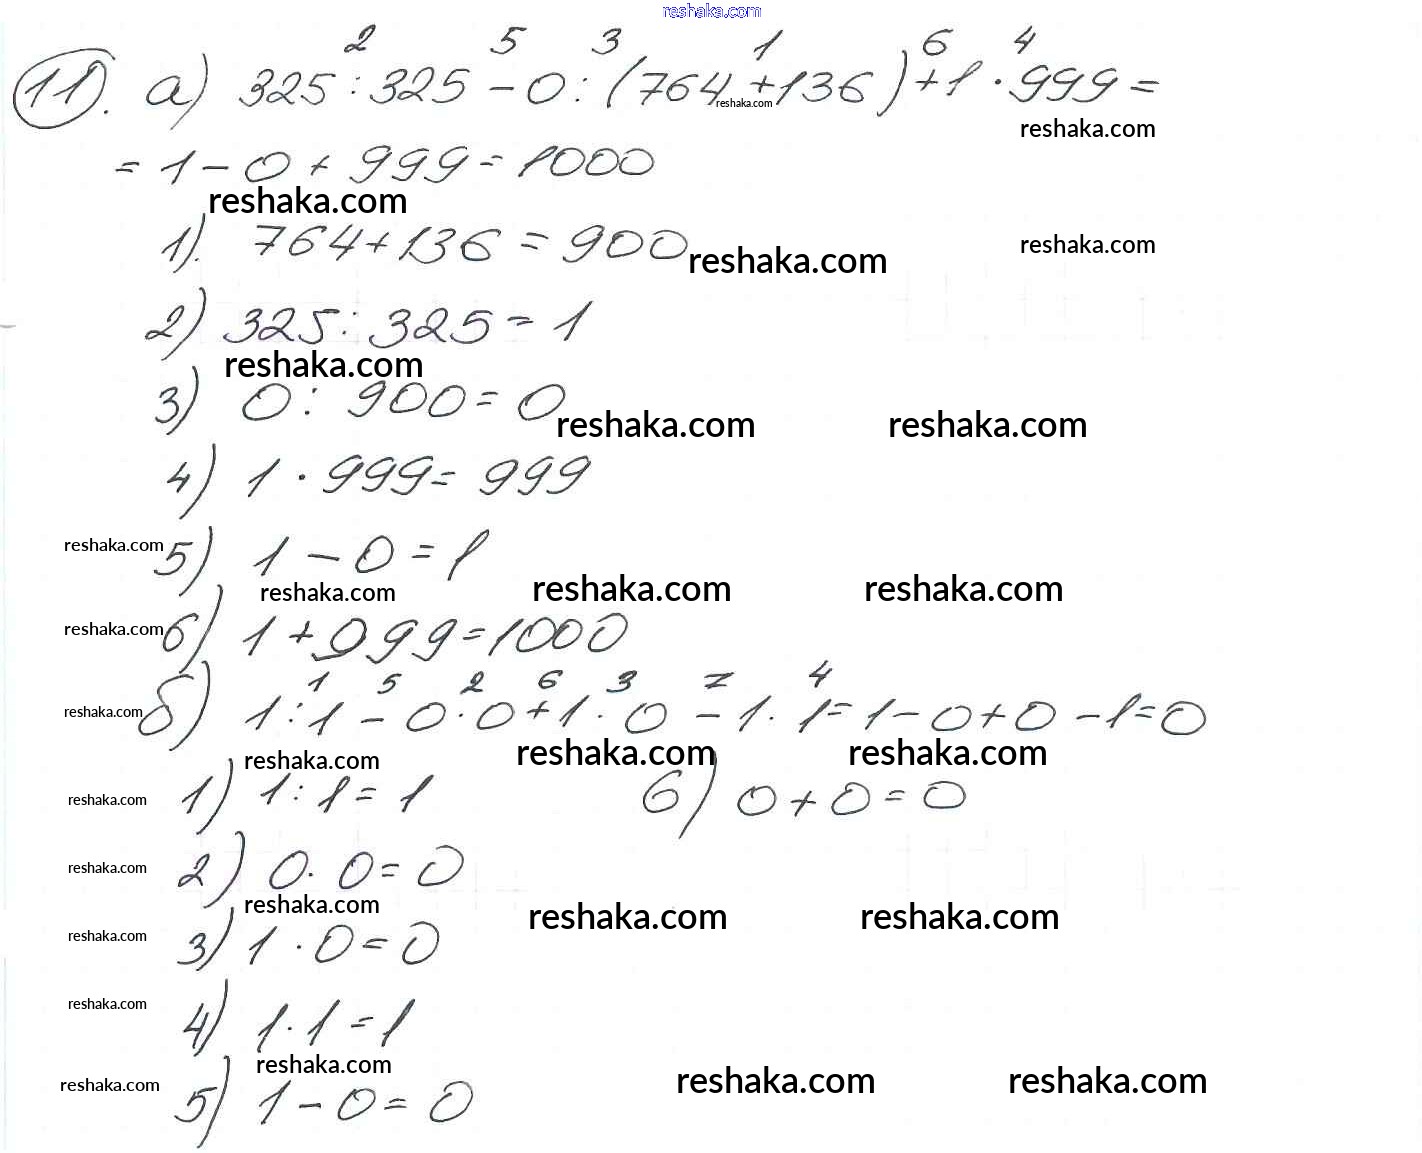 reshaka.com
2 5 3 1 6 4
11. а) 325 : 325 - 0 : (764 + 136) + 1 · 999 =
reshaka.com
reshaka.com
= 1 - 0 + 999 = 1000
reshaka.com
1). 764 + 136 = 900
reshaka.com reshaka.com
2) 325 : 325 = 1
reshaka.com
3) 0 : 900 = 0
reshaka.com reshaka.com
4) 1 · 999 = 999
reshaka.com
5) 1 - 0 = 1
reshaka.com reshaka.com reshaka.com
reshaka.com
6) 1 + 999 = 1000
1 5 2 6 3 7 4
reshaka.com
б) 1 : 1 - 0 · 0 + 1 · 0 - 1 · 1 = 1 - 0 + 0 - 1 = 0
reshaka.com reshaka.com reshaka.com
reshaka.com
1) 1 : 1 = 1 6) 0 + 0 = 0
reshaka.com
2) 0 · 0 = 0
reshaka.com reshaka.com reshaka.com
reshaka.com
3) 1 · 0 = 0
reshaka.com
4) 1 · 1 = 1
reshaka.com reshaka.com reshaka.com
reshaka.com
5) 1 - 0 = 0